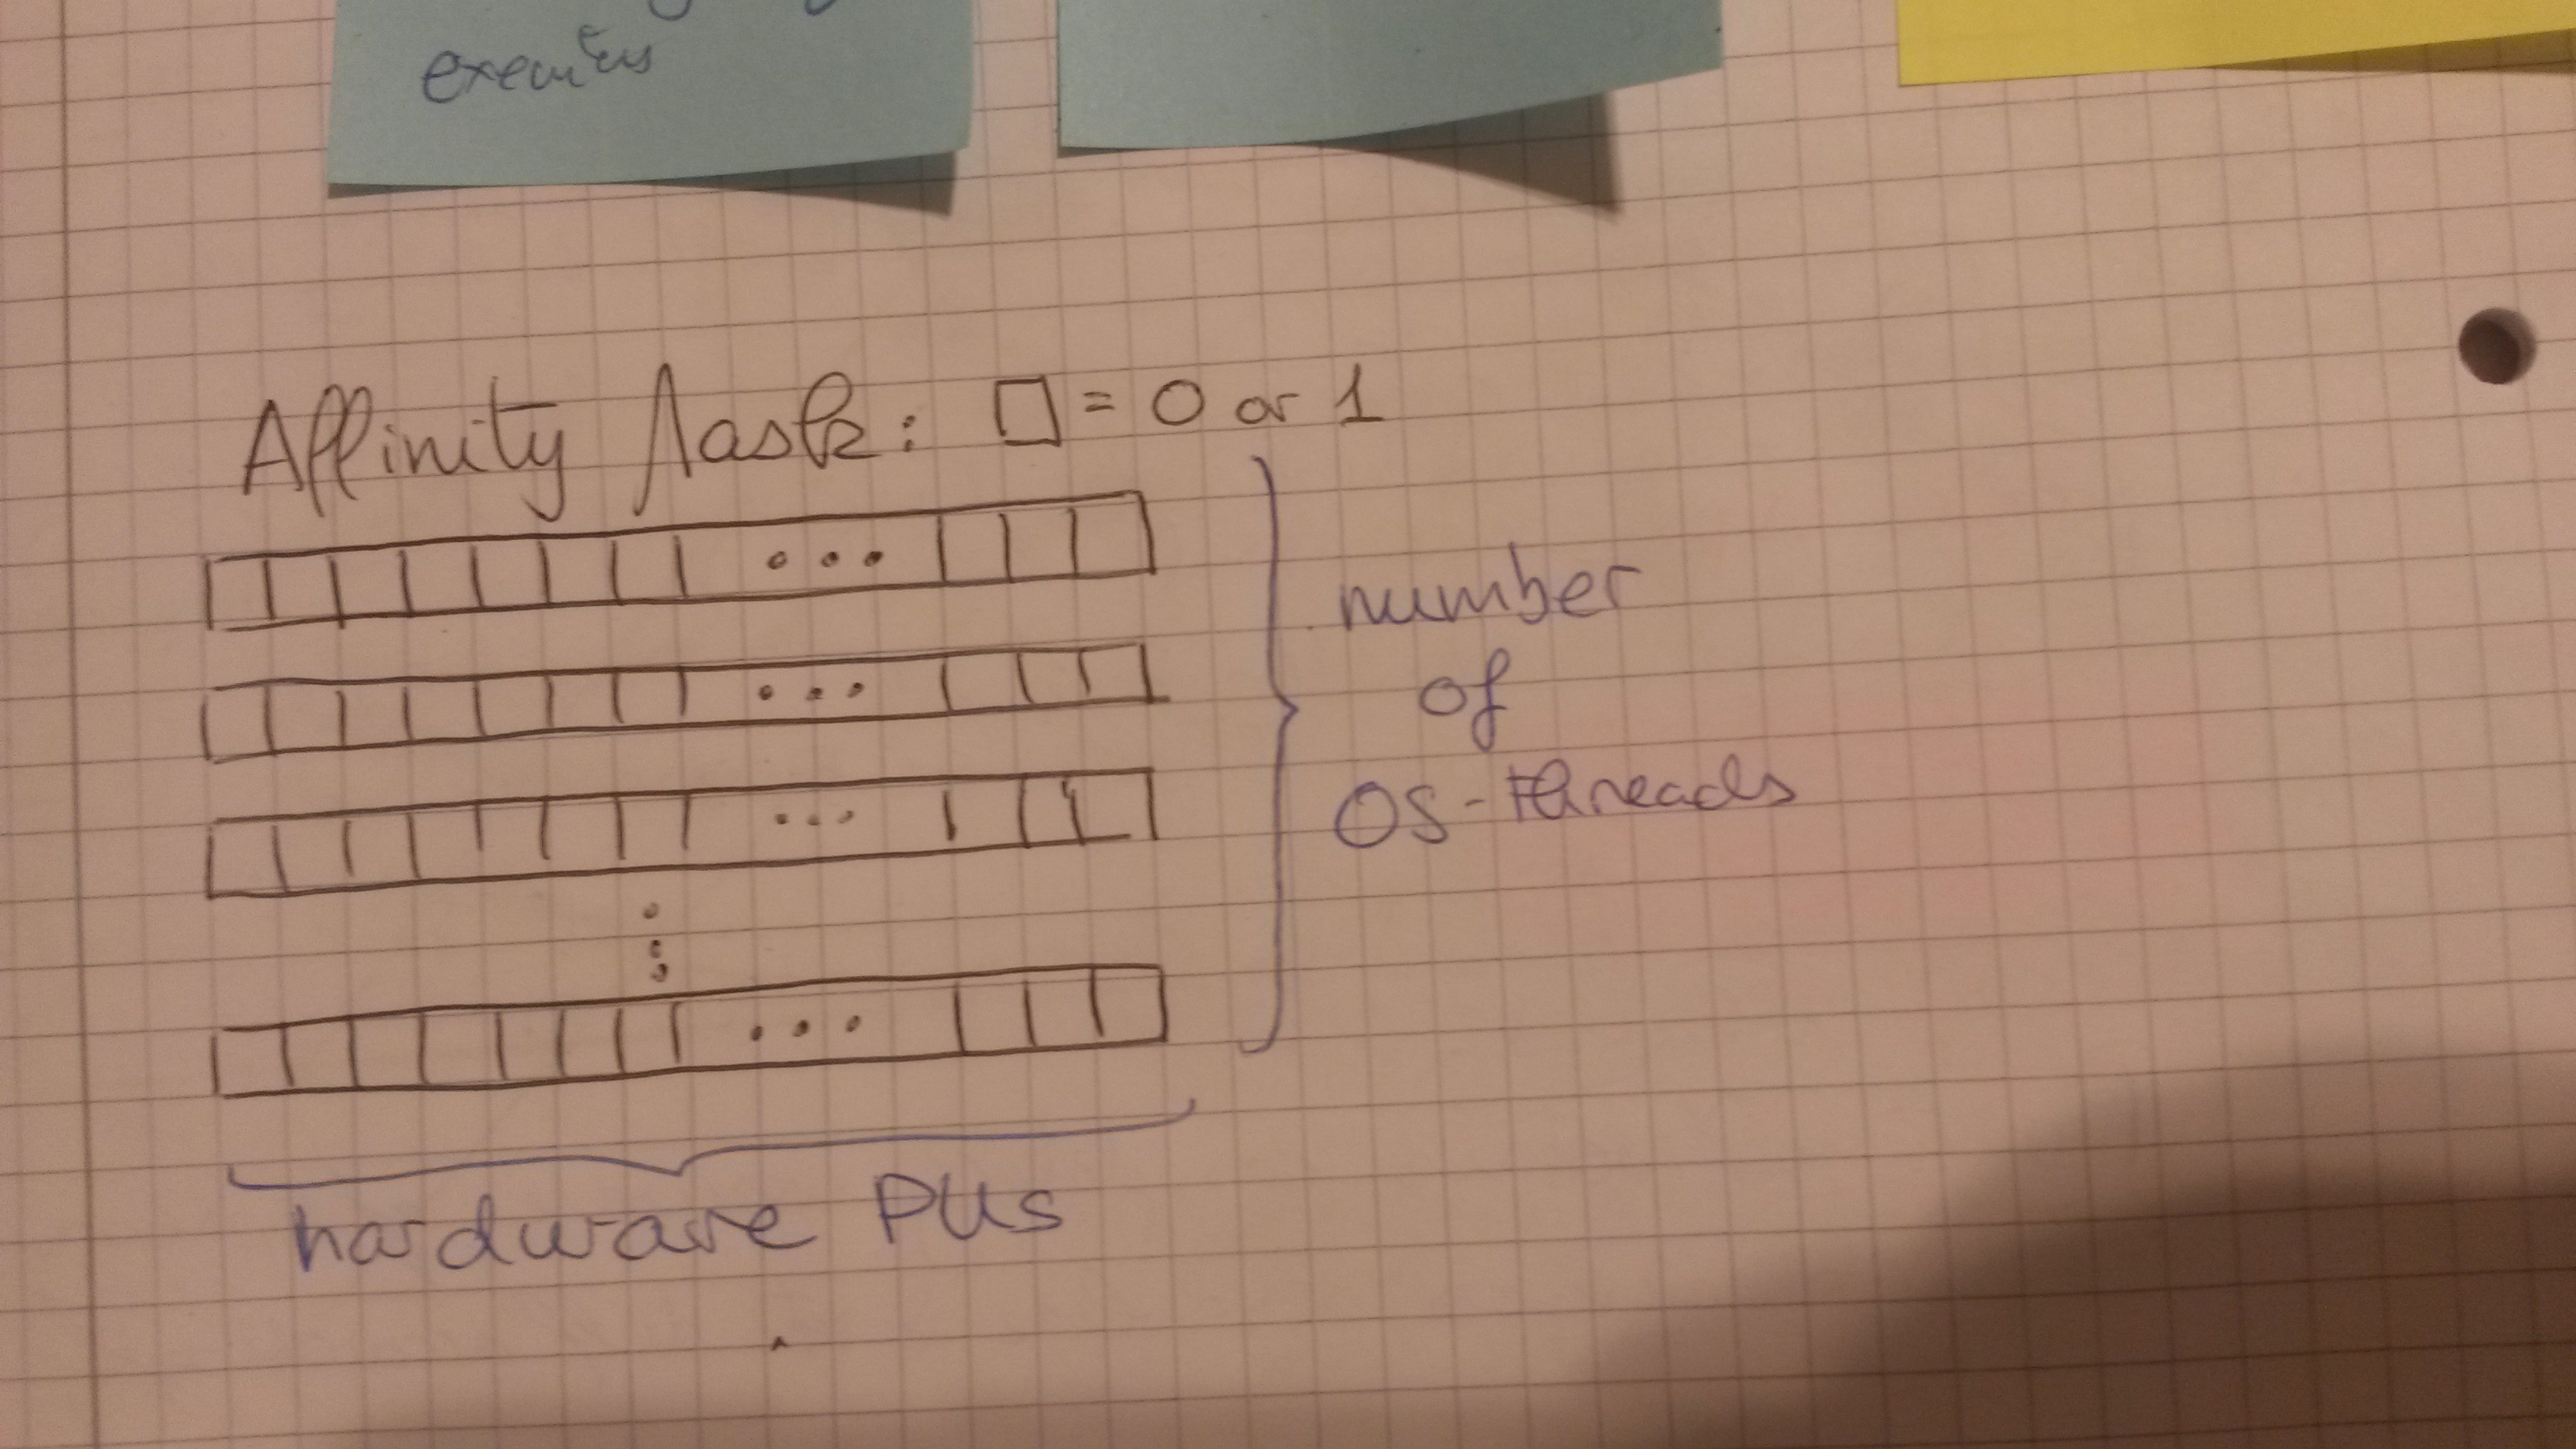 Affinity Mask: □ = 0 or 1
number
of
OS-threads
hardware PUs